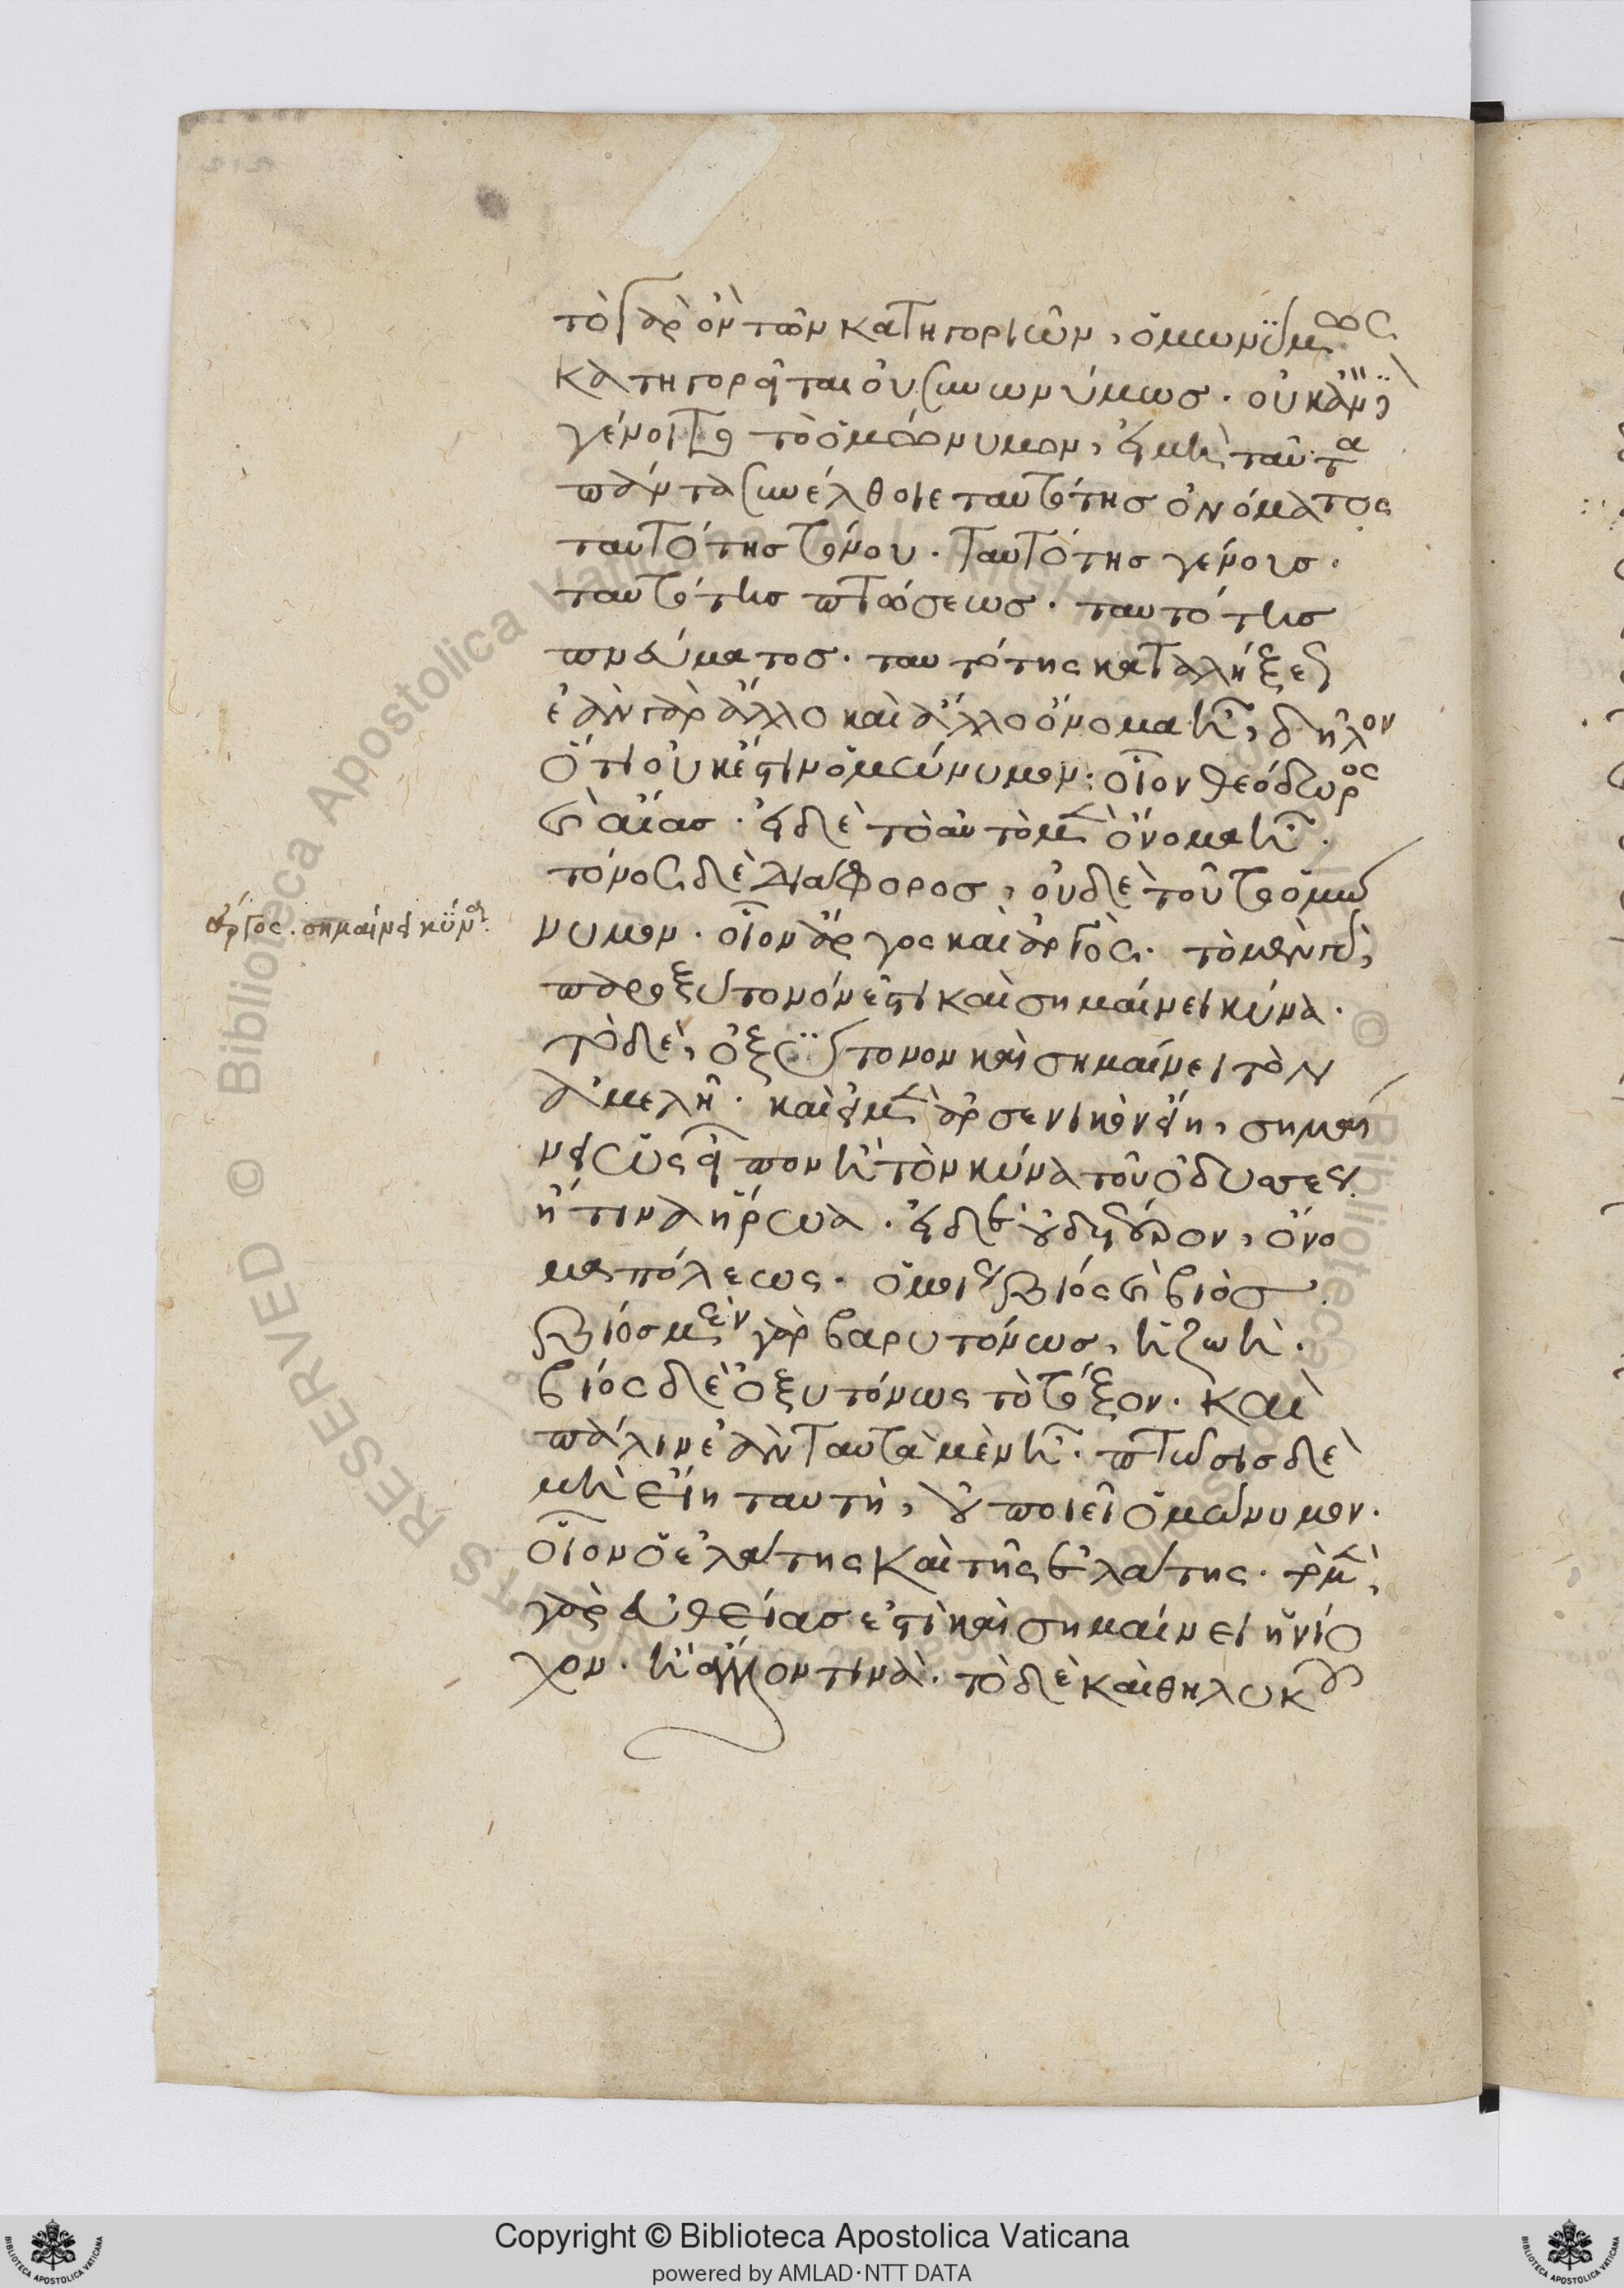 τὸ γὰρ ὂν τῶν κατηγοριῶν, ὁμωνύμως
κατηγορεῖται οὐ συνωνύμως. οὐκ ἂν
γένοιτο τὸ ὁμώνυμον, εἰ μὴ ταῦτα
πάντα συνέλθοιε ταυτότης ὀνόματος
ταυτότης τόνου. ταυτότης γένους.
ταυτότης πτώσεως. ταυτότης
πνεύματος. ταυτότης καταλήξεως
ἐὰν γὰρ ἄλλο καὶ ἄλλο ὄνομα ᾖ, δῆλον
ὅτι οὐκ ἔστιν ὁμώνυμον. οἷον θεόδωρος
καὶ αἴας. εἰ δὲ τὸ αὐτὸ μὲν ὄνομα ᾖ.
τόνος δὲ διάφορος, οὐδὲ τοῦτο ὁμώ
νυμον. οἷον ἄργος καὶ ἀργός. τὸ μὲν γὰρ,
παροξύτονόν ἐστι καὶ σημαίνει κύνα.
τὸ δὲ, ὀξύτονον καὶ σημαίνει τὸν
ἀμελῆ. καὶ εἰ μὲν ἀρσενικὸν εἴη, σημαί
νει
ἢ τὸν κύνα τοῦ ὀδυσσέως
ἤ τινα ἥρωα. εἰ δὲ οὐδέτερον, ὄνο
μα πόλεως. ὁμοίως βίος καὶ βιός
βίος μὲν γὰρ βαρυτόνως, ἡ ζωή.
βιός δὲ ὀξυτόνως τὸ τόξον. καὶ
πάλιν ἐὰν ταῦτα μὲν ᾖ. πτῶσις δὲ
μὴ εἴη ταυτὴ, οὐ ποιεῖ ὁμώνυμον.
οἷον ὁ ἐλάτης καὶ τῆς ἐλάτης. τὸ μὲν
γὰρ εὐθείας ἐστὶ καὶ σημαίνει ἡνίο
χον. ἢ ἄλλον τινὰ. τὸ δὲ καὶ θηλυκοῦ
ἄργος. σημαίνει κύνα.